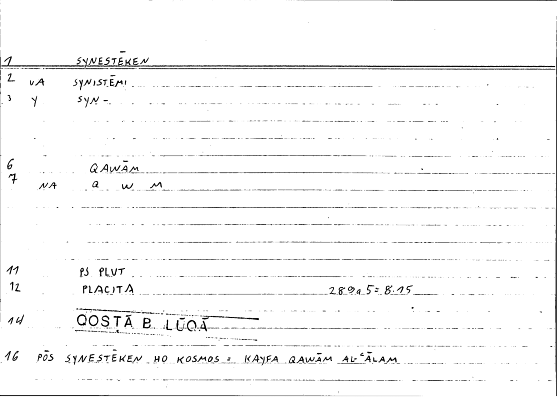 1 SYNESTĒKEN
2 vA SYNISTĒMI
3 y SYN-
6 QAWĀM
7 NA q w m
11 PS PLUT
12 PLACITA 289a5 = 8.15
14 QOSṬĀ B. LŪQĀ
16 PŌS SYNESTĒKEN HO KOSMOS = KAYFA QAWĀM AL-ʿĀLAM